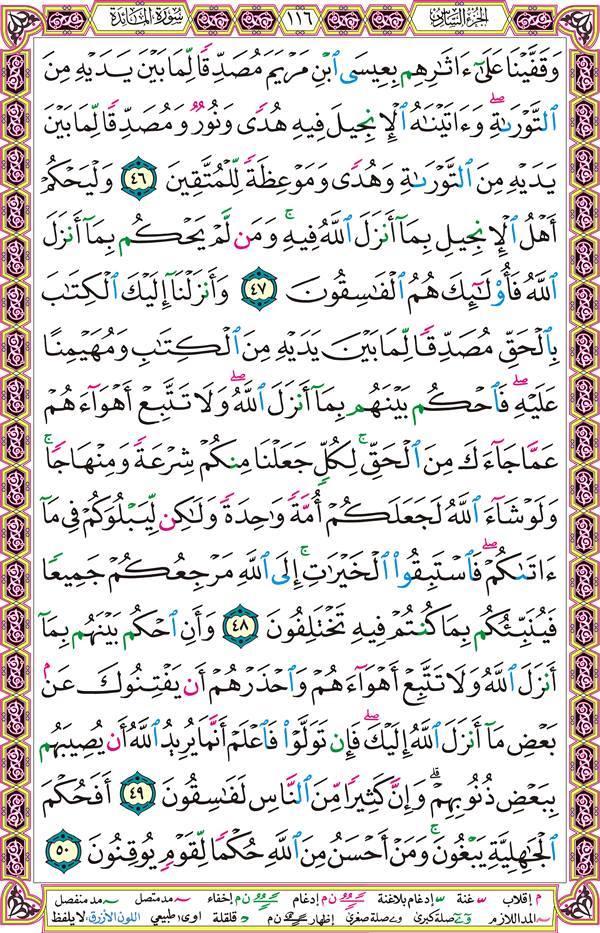 الجزء السادس ١١٦ سورة المائدة
وَقَفَّيْنَا عَلَىٰٓ ءَاثَٰرِهِم بِعِيسَى ٱبْنِ مَرْيَمَ مُصَدِّقًا لِّمَا بَيْنَ يَدَيْهِ مِنَ
ٱلتَّوْرَىٰةِ ۖ وَءَاتَيْنَٰهُ ٱلْإِنجِيلَ فِيهِ هُدًى وَنُورٌ وَمُصَدِّقًا لِّمَا بَيْنَ
يَدَيْهِ مِنَ ٱلتَّوْرَىٰةِ وَهُدًى وَمَوْعِظَةً لِّلْمُتَّقِينَ ٤٦ وَلْيَحْكُمْ
أَهْلُ ٱلْإِنجِيلِ بِمَآ أَنزَلَ ٱللَّهُ فِيهِ ۚ وَمَن لَّمْ يَحْكُم بِمَآ أَنزَلَ
ٱللَّهُ فَأُو۟لَٰٓئِكَ هُمُ ٱلْفَٰسِقُونَ ٤٧ وَأَنزَلْنَآ إِلَيْكَ ٱلْكِتَٰبَ
بِٱلْحَقِّ مُصَدِّقًا لِّمَا بَيْنَ يَدَيْهِ مِنَ ٱلْكِتَٰبِ وَمُهَيْمِنًا
عَلَيْهِ ۖ فَٱحْكُم بَيْنَهُم بِمَآ أَنزَلَ ٱللَّهُ ۖ وَلَا تَتَّبِعْ أَهْوَآءَهُمْ
عَمَّا جَآءَكَ مِنَ ٱلْحَقِّ ۚ لِكُلٍّ جَعَلْنَا مِنكُمْ شِرْعَةً وَمِنْهَاجًا ۚ
وَلَوْ شَآءَ ٱللَّهُ لَجَعَلَكُمْ أُمَّةً وَٰحِدَةً وَلَٰكِن لِّيَبْلُوَكُمْ فِى مَآ
ءَاتَىٰكُمْ ۖ فَٱسْتَبِقُوا۟ ٱلْخَيْرَٰتِ ۚ إِلَى ٱللَّهِ مَرْجِعُكُمْ جَمِيعًا
فَيُنَبِّئُكُم بِمَا كُنتُمْ فِيهِ تَخْتَلِفُونَ ٤٨ وَأَنِ ٱحْكُم بَيْنَهُم بِمَآ
أَنزَلَ ٱللَّهُ وَلَا تَتَّبِعْ أَهْوَآءَهُمْ وَٱحْذَرْهُمْ أَن يَفْتِنُوكَ عَنۢ
بَعْضِ مَآ أَنزَلَ ٱللَّهُ إِلَيْكَ ۖ فَإِن تَوَلَّوْا۟ فَٱعْلَمْ أَنَّمَا يُرِيدُ ٱللَّهُ أَن يُصِيبَهُم
بِبَعْضِ ذُنُوبِهِمْ ۗ وَإِنَّ كَثِيرًا مِّنَ ٱلنَّاسِ لَفَٰسِقُونَ ٤٩ أَفَحُكْمَ
ٱلْجَٰهِلِيَّةِ يَبْغُونَ ۚ وَمَنْ أَحْسَنُ مِنَ ٱللَّهِ حُكْمًا لِّقَوْمٍ يُوقِنُونَ ٥٠
م إقلاب غنة إدغام بلاغنة ن م إدغام ن م إخفاء مد متصل مد منفصل
المد اللازم صلة كبرى صلة صغرى إظهار ن م قلقلة اوى طبيعي اللون الأزرق لا يلفظ